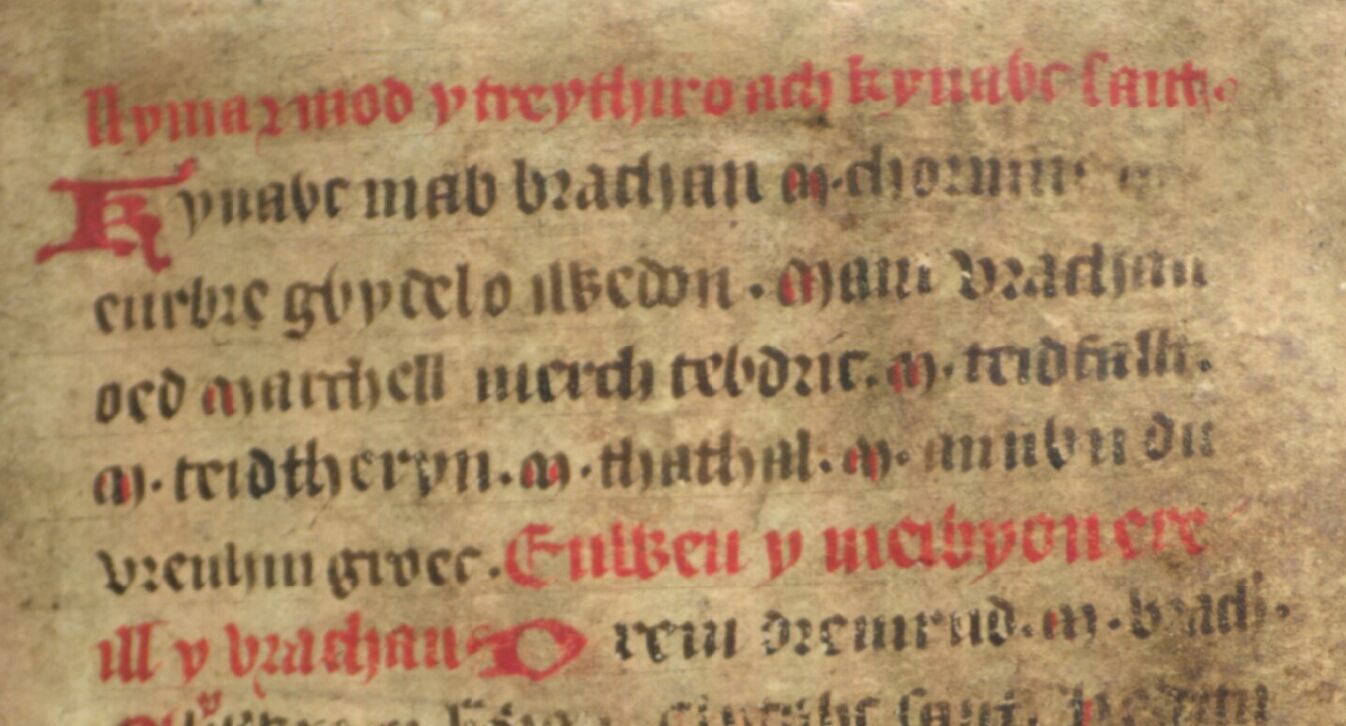 Llyma y mod y treythir o ach kynavc sant.
Kynavc mab brachan m. chormuc
eurbre gvydel o iwedon. Mam vrachan
oed marchell merch tevdric. m. teidfallt.
m. teidtheryn. m. thathal. m. annvn du
vrenhin groec. Enweu y meibyon ere
ill y brachan D rem dremrud. m. brach.